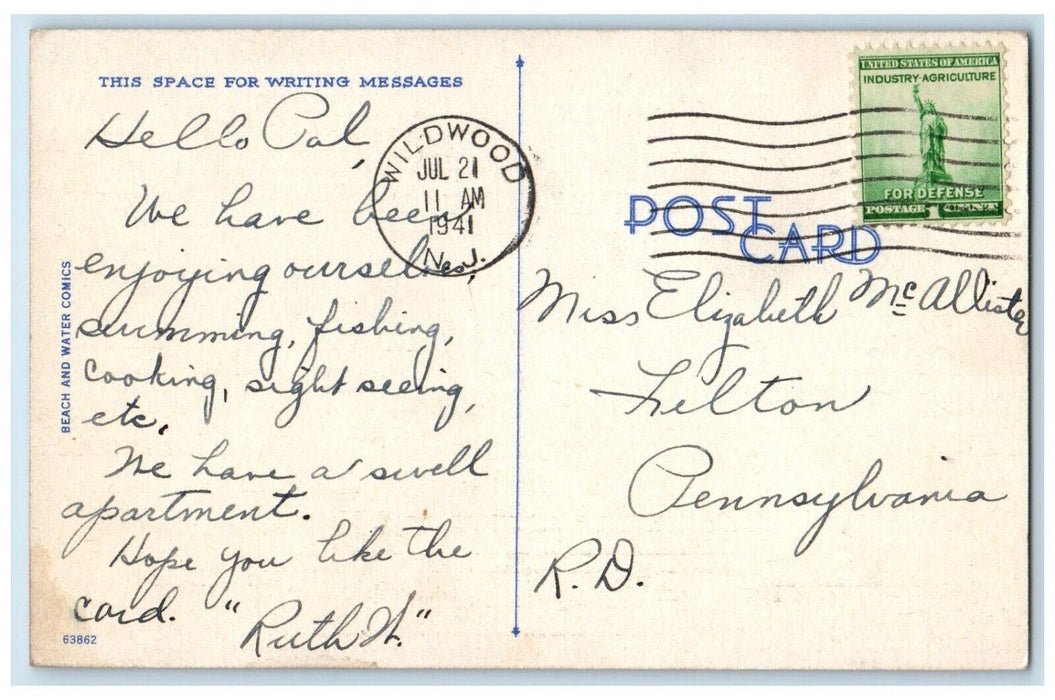 THIS SPACE FOR WRITING MESSAGES
Hello Pal,
We have been
enjoying ourselves,
swimming, fishing,
cooking, sight seeing,
etc.
We have a swell
apartment.
Hope you like the
card. "Ruth H."
BEACH AND WATER COMICS
63862
WILDWOOD
JUL 21
11 AM
1941
N.J.
POST
CARD
UNITED STATES OF AMERICA
INDUSTRY·AGRICULTURE
FOR DEFENSE
POSTAGE 1 CENT
Miss Elizabeth McAllister
Felton
Pennsylvania
R.D.